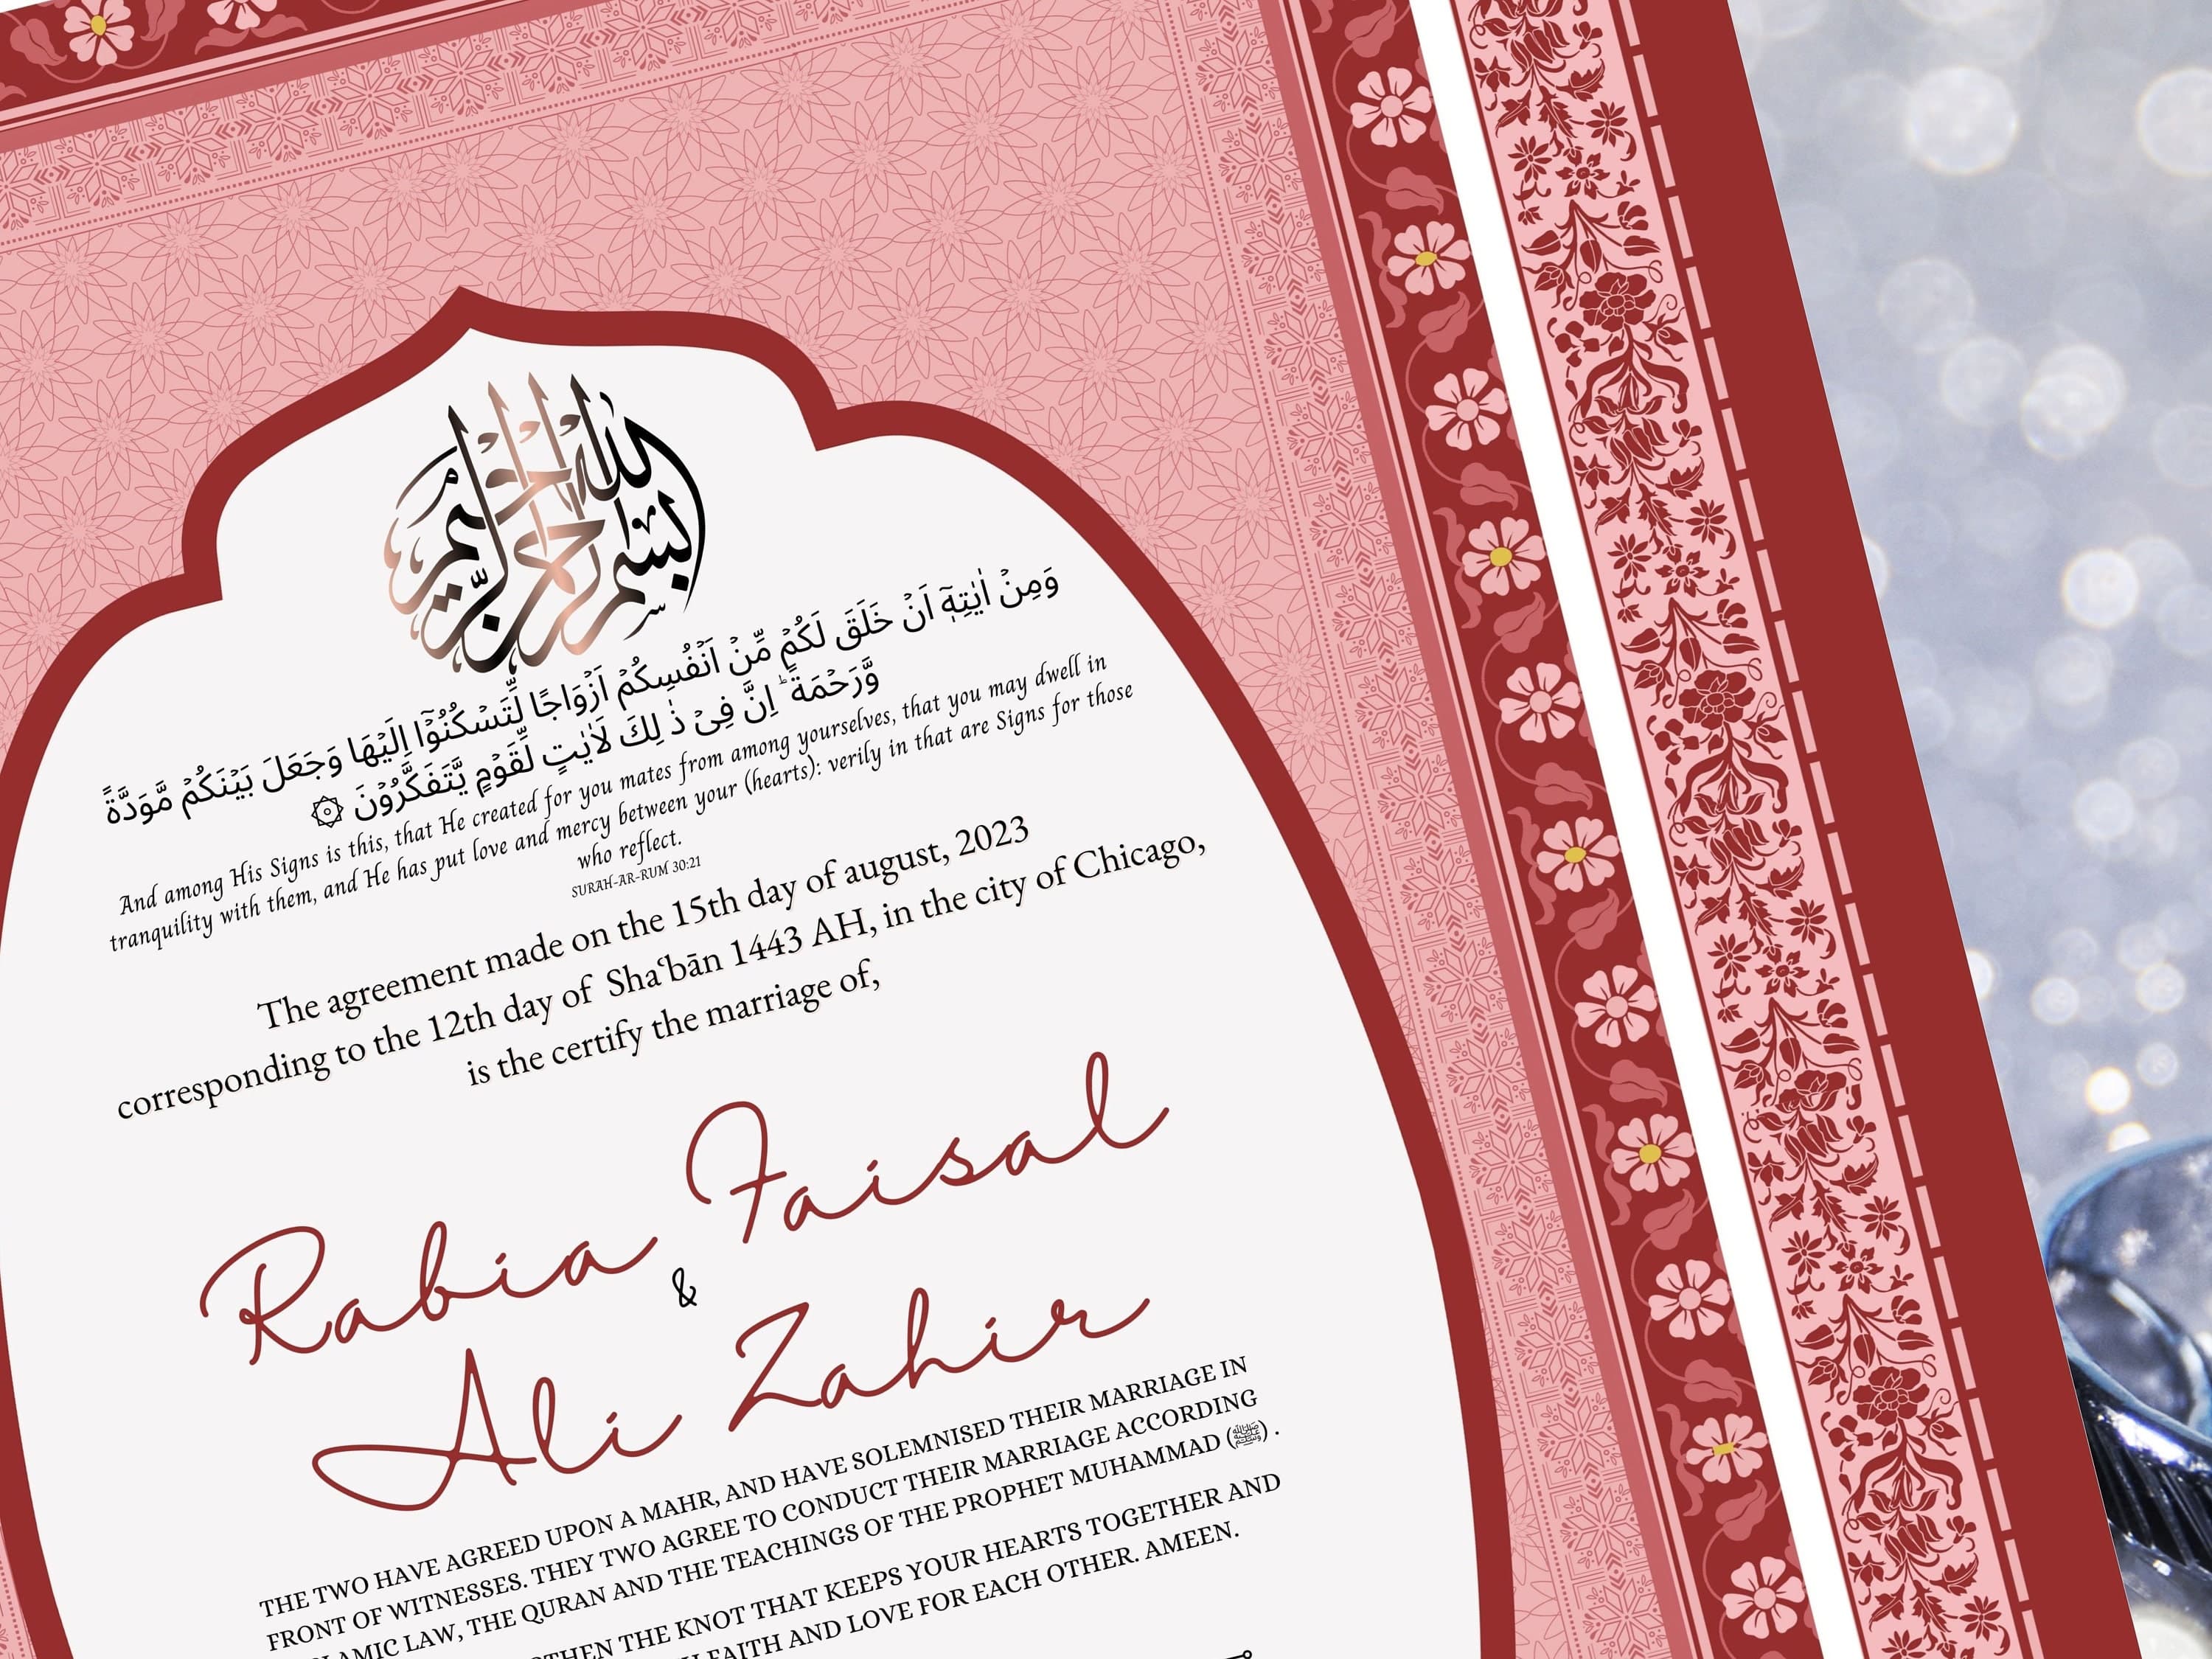 بسم الله الرحمن الرحيم
وَمِنۡ اٰيٰتِهٖۤ اَنۡ خَلَقَ لَكُمۡ مِّنۡ اَنۡفُسِكُمۡ اَزۡوَاجًا لِّتَسۡكُنُوۡۤا اِلَيۡهَا وَجَعَلَ بَيۡنَكُمۡ مَّوَدَّةً
وَّرَحۡمَةً  ؕ اِنَّ فِىۡ ذٰ لِكَ لَاٰيٰتٍ لِّقَوۡمٍ يَّتَفَكَّرُوۡنَ ۞
And among His Signs is this, that He created for you mates from among yourselves, that you may dwell in
tranquility with them, and He has put love and mercy between your (hearts): verily in that are Signs for those
who reflect.
SURAH-AR-RUM 30:21
The agreement made on the 15th day of august, 2023
corresponding to the 12th day of Sha‘bān 1443 AH, in the city of Chicago,
is the certify the marriage of,
Rabia Faisal
&
Ali Zahir
THE TWO HAVE AGREED UPON A MAHR, AND HAVE SOLEMNISED THEIR MARRIAGE IN
FRONT OF WITNESSES. THEY TWO AGREE TO CONDUCT THEIR MARRIAGE ACCORDING
LAMIC LAW, THE QURAN AND THE TEACHINGS OF THE PROPHET MUHAMMAD (ﷺ) .
THEN THE KNOT THAT KEEPS YOUR HEARTS TOGETHER AND
FAITH AND LOVE FOR EACH OTHER. AMEEN.